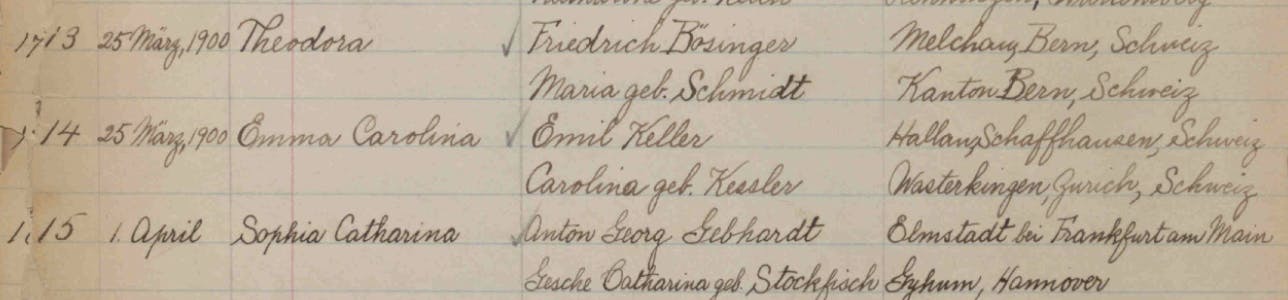 13 25 März, 1900 Theodora ✓ Friedrich Bösinger Melchau, Bern, Schweiz
Maria geb. Schmidt Kanton Bern, Schweiz
14 25 März, 1900 Emma Carolina ✓ Emil Keller Hallau, Schaffhausen, Schweiz
Carolina geb. Kessler Wasterkingen, Zurich, Schweiz
15 1. April Sophia Catharina ✓ Anton Georg Gebhardt Elmstadt bei Frankfurt am Main
Gesche Catharina geb. Stockfisch Gyhum, Hannover